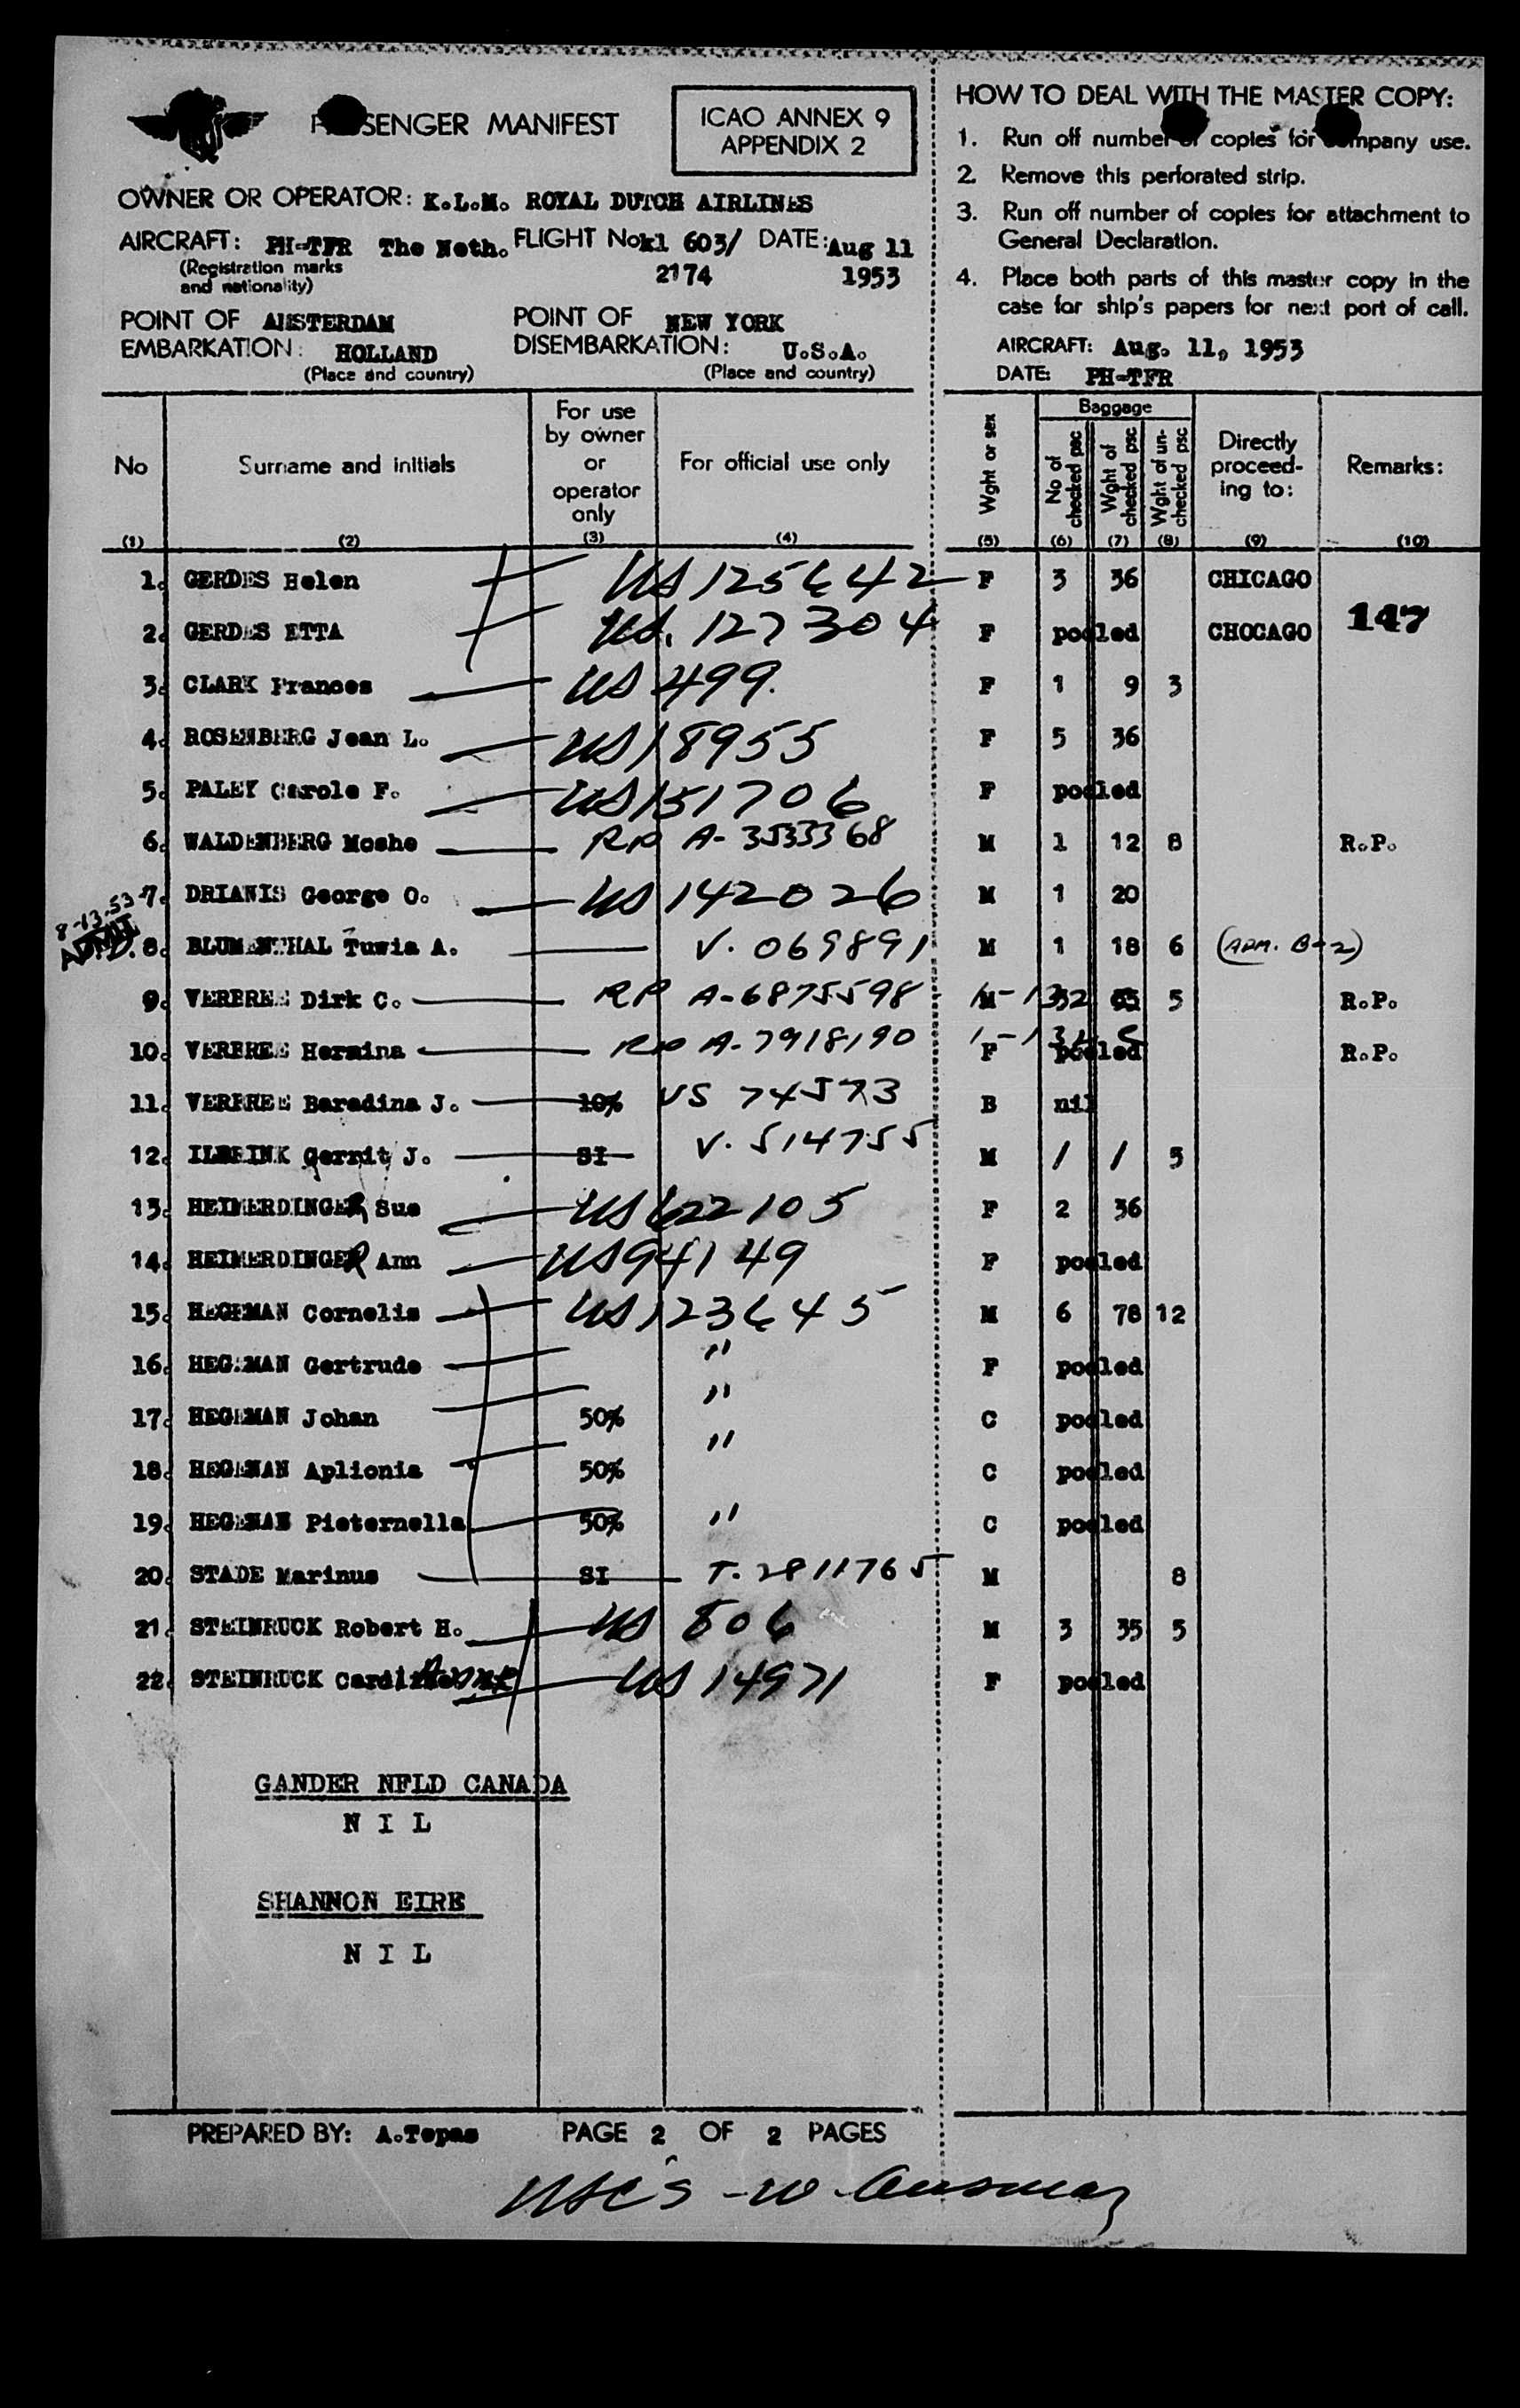 PASSENGER MANIFEST
ICAO ANNEX 9
APPENDIX 2
OWNER OR OPERATOR: K.L.M. ROYAL DUTCH AIRLINES
AIRCRAFT: PH-TFR The Neth. FLIGHT No kl 603/ DATE: Aug 11
(Registration marks and nationality) 2174 1953
POINT OF EMBARKATION: AMSTERDAM HOLLAND
(Place and country)
POINT OF DISEMBARKATION: NEW YORK U.S.A.
(Place and country)
HOW TO DEAL WITH THE MASTER COPY:
1. Run off number of copies for company use.
2. Remove this perforated strip.
3. Run off number of copies for attachment to
General Declaration.
4. Place both parts of this master copy in the
case for ship's papers for next port of call.
AIRCRAFT: Aug. 11, 1953
DATE: PH-TFR
No (1)
Surname and initials (2)
For use by owner or operator only (3)
For official use only (4)
Wght or sex (5)
Baggage
No of checked psc (6)
Wght of checked psc (7)
Wght of un-checked psc (8)
Directly proceed-ing to: (9)
Remarks: (10)
1. GERDES Helen US 125642 F 3 36 CHICAGO
147
2. GERDES ETTA US. 127304 F pooled CHOCAGO
3. CLARK Frances US 499. F 1 9 3
4. ROSENBERG Jean L. US 18955 F 5 36
5. PALEY Carole F. US 151706 F pooled
6. WALDENBERG Moshe RP A-3533368 M 1 12 8 R.P.
7. DRIANIS George O. US 142026 M 1 20
8-13-53
ADMIT.
8. BLUMENTHAL Tuwia A. V. 069891 M 1 18 6 (ADM. B-2)
9. VERBREE Dirk C. RP A-6875598 M 5 R.P.
10. VERBREE Hermina RP A-7918190 F pooled R.P.
11. VERBREE Baradina J. 10% US 74573 B nil
12. ILBRINK Gerrit J. SI V. 514755 M / / 5
13. HEIMERDINGER Sue US 622105 F 2 36
14. HEIMERDINGER Ann US 94149 F pooled
15. HEGEMAN Cornelis US 123645 M 6 78 12
16. HEGEMAN Gertrude " F pooled
17. HEGEMAN Johan 50% " C pooled
18. HEGEMAN Aplionia 50% " C pooled
19. HEGEMAN Pieternella 50% " C pooled
20. STADE Marinus SI T. 2811765 M 8
21. STEINRUCK Robert H. US 806 M 3 35 5
22. STEINRUCK US 14971 F pooled
GANDER NFLD CANADA
N I L
SHANNON EIRE
N I L
PREPARED BY: A.Tepas PAGE 2 OF 2 PAGES